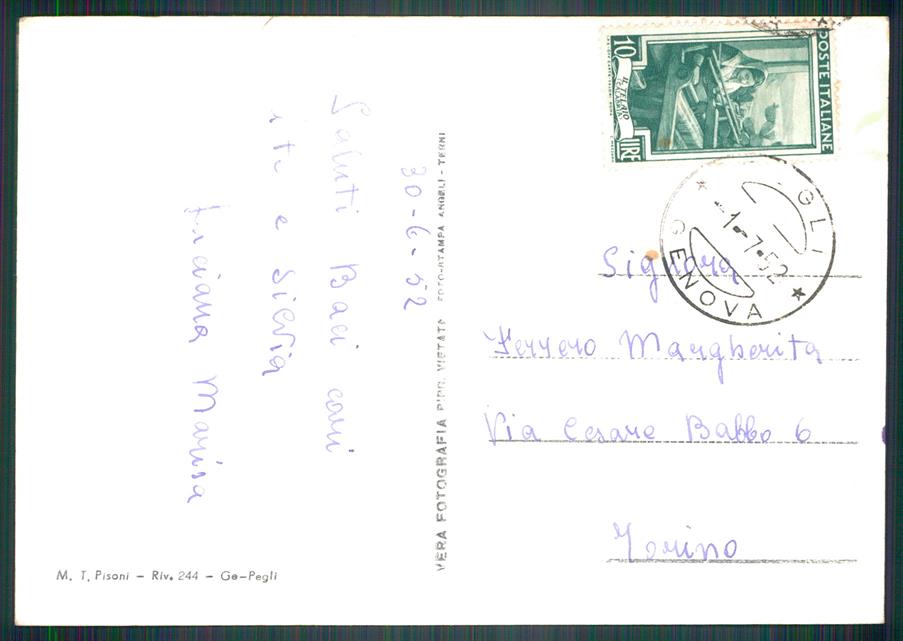 30-6-52
Saluti Baci cari
e Silvia
Luciana Marisa
VERA FOTOGRAFIA RIPR. VIETATA FOTO-STAMPA ANGELI - TERNI
M. T. Pisoni - Riv. 244 - Ge-Pegli
10
LIRE
POSTE ITALIANE
GLI
-1-7-52
GENOVA
Signora
Ferrero Margherita
Via Cesare Balbo 6
Torino